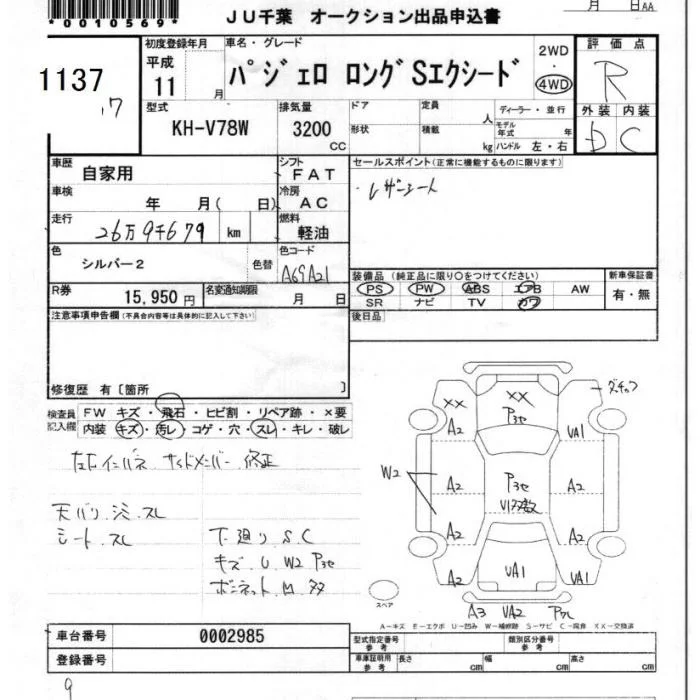 *0010569*
JU千葉 オークション出品申込書
月 日AA
1137
17
初度登録年月
平成
11 月
車名・グレード
パジェロ ロングSエクシード
2WD
・
4WD
評価点
R
外装 内装
D C
型式
KH-V78W
排気量
3200
CC
ドア
形状
定員
人
積載
kg
ディーラー・並行
モデル年式 年
ハンドル 左・右
車歴
自家用
シフト
FAT
車検
年 月( 日)
冷房
AC
走行
26万9千679 km
燃料
軽油
色
シルバー2
色替
色コード
A69A21
R券
15,950円
名変通知期限
月 日
セールスポイント(正常に機能するものに限ります)
・レザーシート
装備品(純正品に限り○をつけてください)
PS PW ABS エアB AW
SR ナビ TV カワ
新車保証書
有・無
後日品
注意事項申告欄(不具合内容等は具体的に記入して下さい)
修復歴 有〔箇所 〕
検査員記入欄
FW キズ・飛石・ヒビ割・リペア跡・×要
内装 キズ・汚レ・コゲ・穴・スレ・キレ・破レ
左右インパネ サイドメンバー 修正
天バリ シミ スレ
シート スレ
下廻り S.C
キズ U W2 P3セ
ボンネット M タタ
XX
A2
XX
P3セ
ダキカツ
VA1
W2
A2
P3セ
V1多数
A2
A2
A2
A2
VA1
VA1
スペア
A3 VA2 アワレ
A-キズ E-エクボ U-凹み W-補修跡 S-サビ C-腐食 XX-交換済
車台番号
0002985
登録番号
型式指定番号
参考
類別区分番号
参考
車庫証明用
参考
長さ cm
幅 cm
高さ cm
9